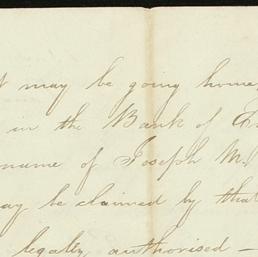 may be going home
in the Bank of
name of Joseph M
may be claimed by that
legally authorised —